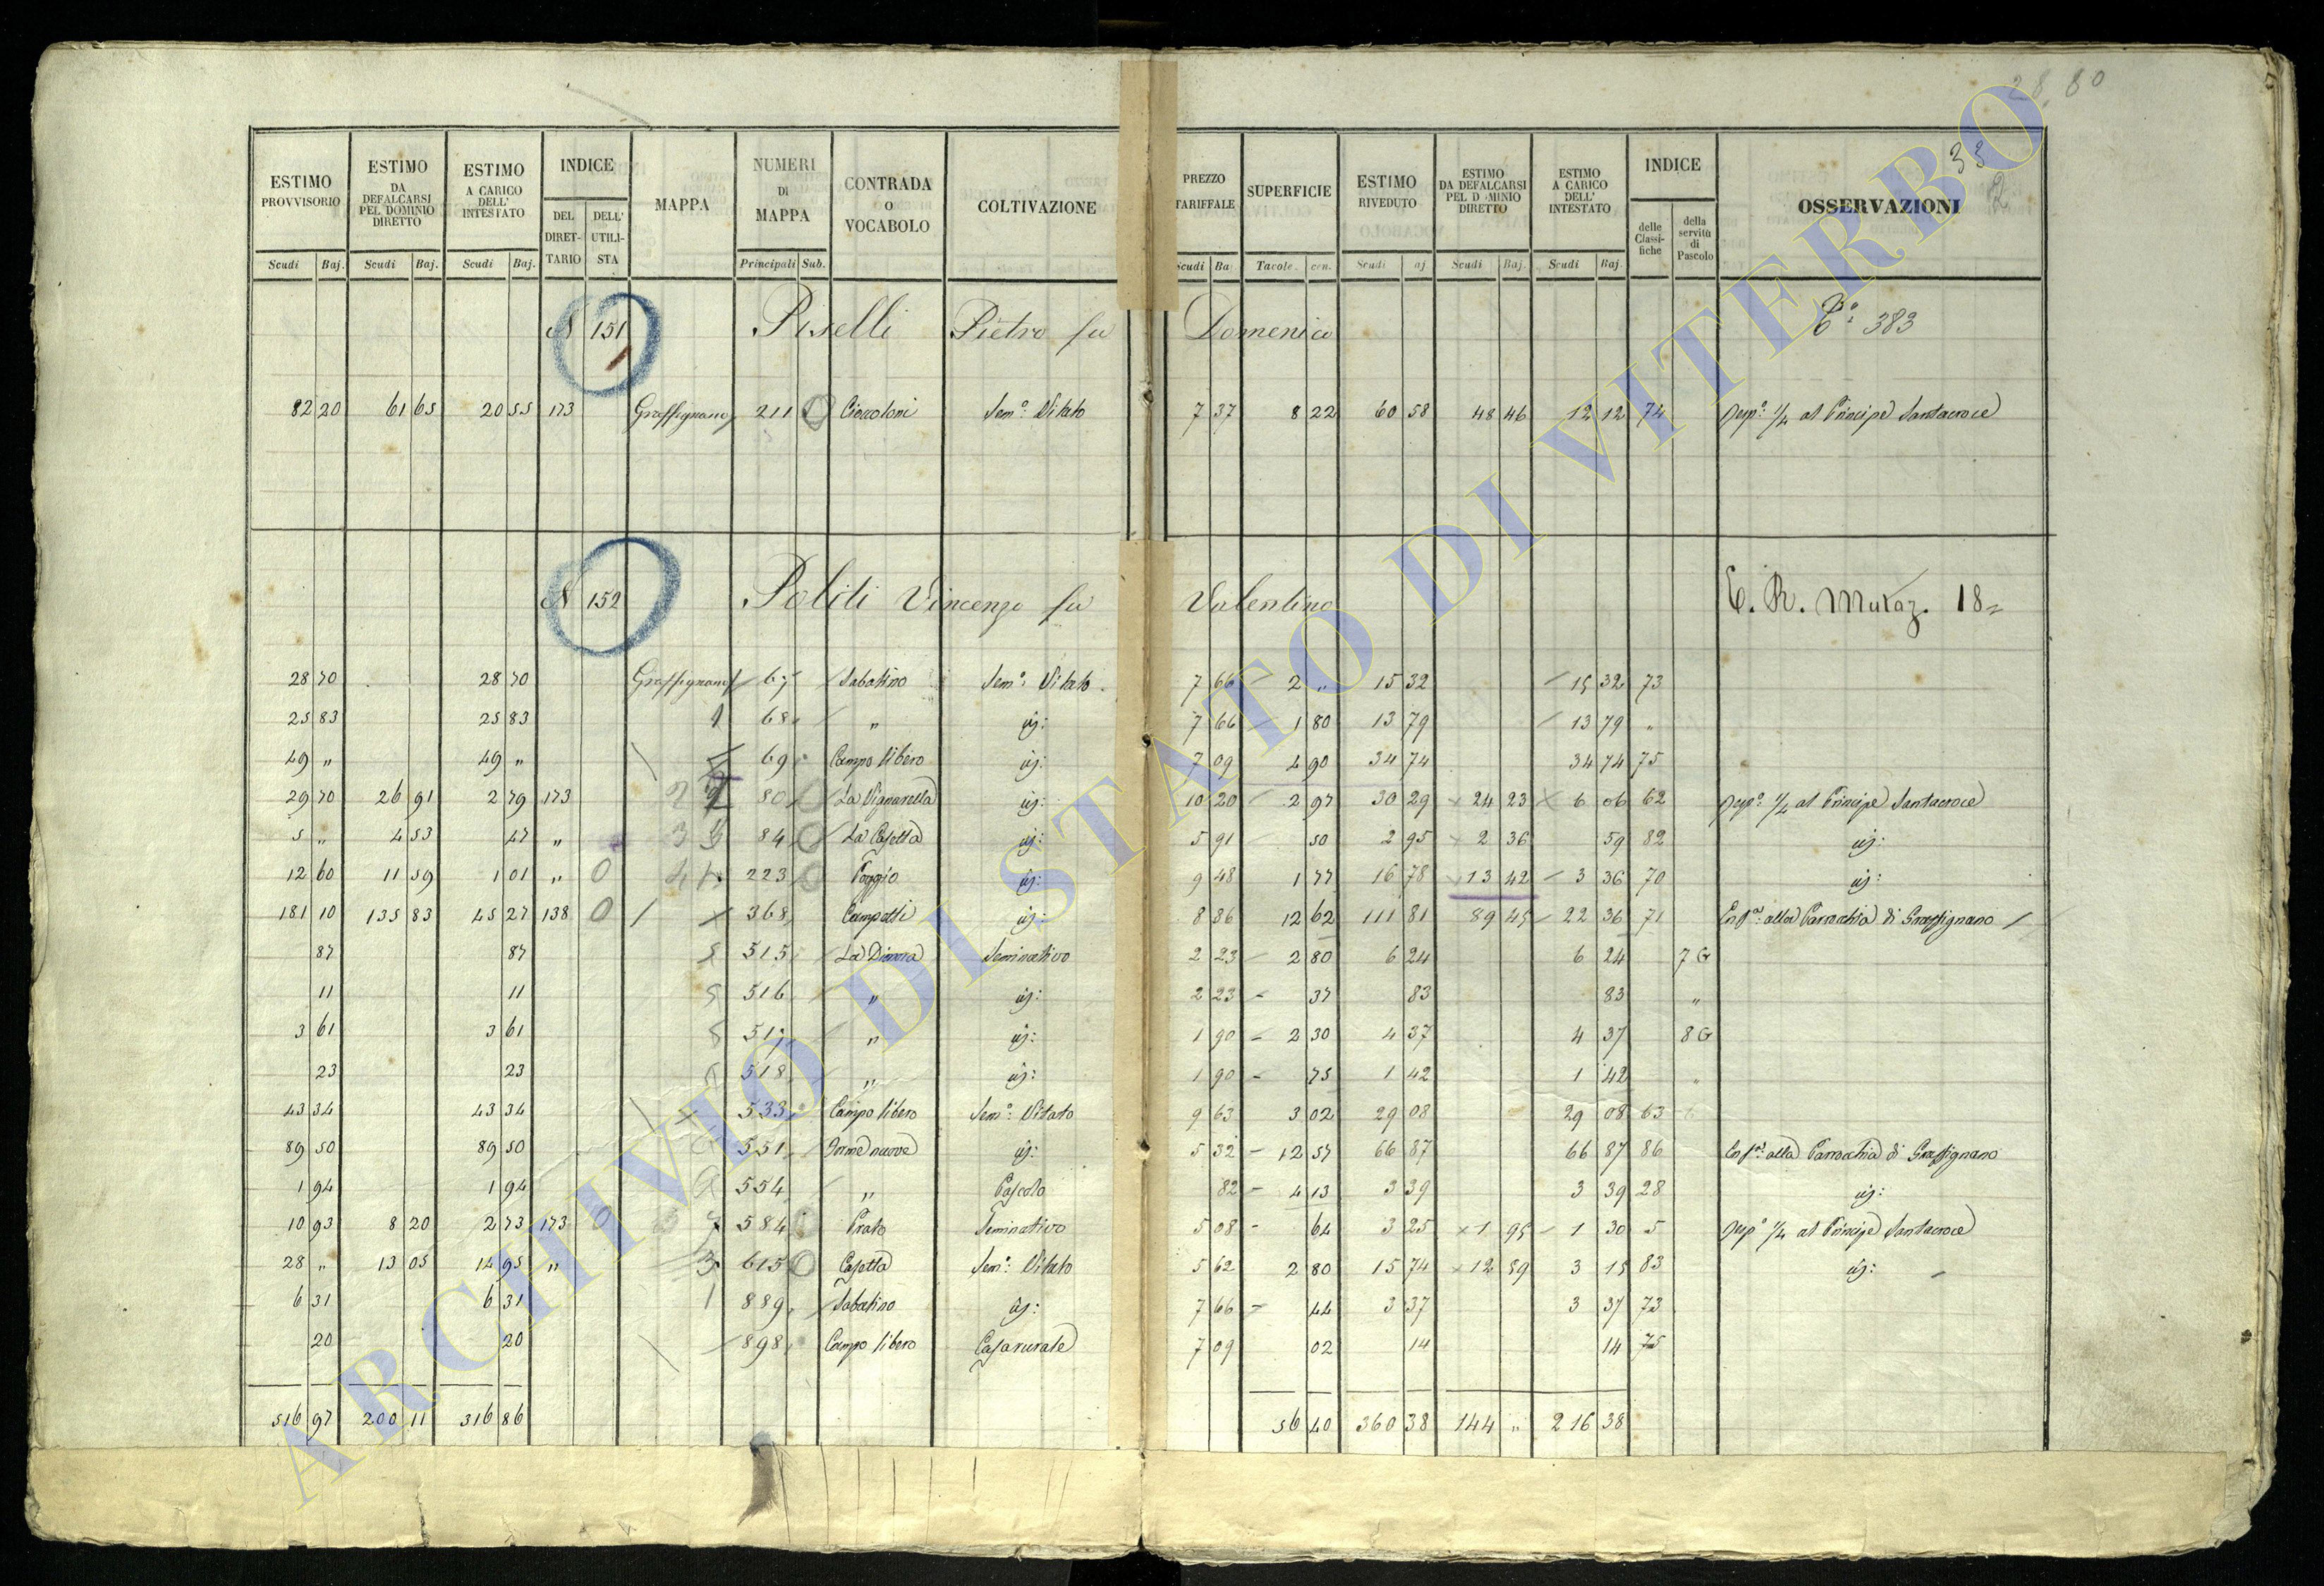 28.80
33
2
ESTIMO PROVVISORIO | ESTIMO DA DEFALCARSI PEL DOMINIO DIRETTO | ESTIMO A CARICO DELL' INTESTATO | INDICE DEL DIRETTARIO | DELL' UTILISTA | MAPPA | NUMERI DI MAPPA | CONTRADA O VOCABOLO | COLTIVAZIONE | PREZZO TARIFFALE | SUPERFICIE | ESTIMO RIVEDUTO | ESTIMO DA DEFALCARSI PEL DOMINIO DIRETTO | ESTIMO A CARICO DELL' INTESTATO | INDICE delle Classifiche | della servitù di Pascolo | OSSERVAZIONI
Scudi Baj. | Scudi Baj. | Scudi Baj. | Principali Sub. | Scudi Ba | Tavole cen. | Scudi aj | Scudi Baj. | Scudi Baj.
N 151 Piselli Pietro fu Domenico 383
82 20 | 61 65 | 20 55 | 173 | Graffignano | 211 | Cioccoloni | Sem.º Vitato | 7 37 | 8 22 | 60 58 | 48 46 | 12 12 | 74 | Risp.ª 1/4 al Principe Santacroce
N 152 Politi Vincenzo fu Valentino 18
28 70 | 28 70 | Graffignano | 67 | Sabatino | Sem.º Vitato | 7 66 | 2 " | 15 32 | 15 32 | 73
25 83 | 25 83 | 1 | 68 | " | id: | 7 66 | 1 80 | 13 79 | 13 79 | "
49 " | 49 " | 69 | Campo libero | id: | 7 09 | 4 90 | 34 74 | 34 74 | 75
29 70 | 26 91 | 2 79 | 173 | 2 | 80 | La Vignarella | id: | 10 20 | 2 97 | 30 29 | 24 23 | 6 06 | 62 | Risp.ª 1/4 al Principe Santacroce
5 " | 4 53 | 47 | " | 3 | 84 | La Casetta | id: | 5 91 | 50 | 2 95 | 2 36 | 59 | 82 | id:
12 60 | 11 59 | 1 01 | " | 0 | 4 | 223 | Poggio | id: | 9 48 | 1 77 | 16 78 | 13 42 | 3 36 | 70 | id:
181 10 | 135 83 | 45 27 | 138 | 0 | 368 | Campetti | id: | 8 86 | 12 62 | 111 81 | 89 45 | 22 36 | 71 | Enf.ª alla Parrochia di Graffignano
87 | 87 | 5 | 515 | La Dimora | Seminativo | 2 23 | 2 80 | 6 24 | 6 24 | 7 G
11 | 11 | 5 | 516 | " | id: | 2 23 | 37 | 83 | 83 | "
3 61 | 3 61 | 5 | 517 | " | id: | 1 90 | 2 30 | 4 37 | 4 37 | 8 G
23 | 23 | 518 | " | id: | 1 90 | 75 | 1 42 | 1 42 | "
43 34 | 43 34 | 533 | Campo libero | Sem.º Vitato | 9 63 | 3 02 | 29 08 | 29 08 | 63
89 50 | 89 50 | 551 | id: | 5 32 | 12 57 | 66 87 | 66 87 | 86 | Enf.ª alla Parrochia di Graffignano
1 94 | 1 94 | 554 | " | Pascolo | 82 | 4 13 | 3 39 | 3 39 | 28 | id:
10 93 | 8 20 | 2 73 | 173 | 0 | 7 | 584 | Prato | Seminativo | 5 08 | 64 | 3 25 | 1 95 | 1 30 | 5 | Risp.ª 1/4 al Principe Santacroce
28 " | 13 05 | 14 95 | " | 3 | 615 | Casetta | Sem.º Vitato | 5 62 | 2 80 | 15 74 | 12 59 | 3 15 | 83 | id:
6 31 | 6 31 | 1 | 889 | Sabatino | id: | 7 66 | 44 | 3 37 | 3 37 | 73
20 | 20 | 898 | Campo libero | Casa rurale | 7 09 | 02 | 14 | 14 | 75
516 97 | 200 11 | 316 86 | 56 40 | 360 38 | 144 " | 216 38
ARCHIVIO DI STATO DI VITERBO